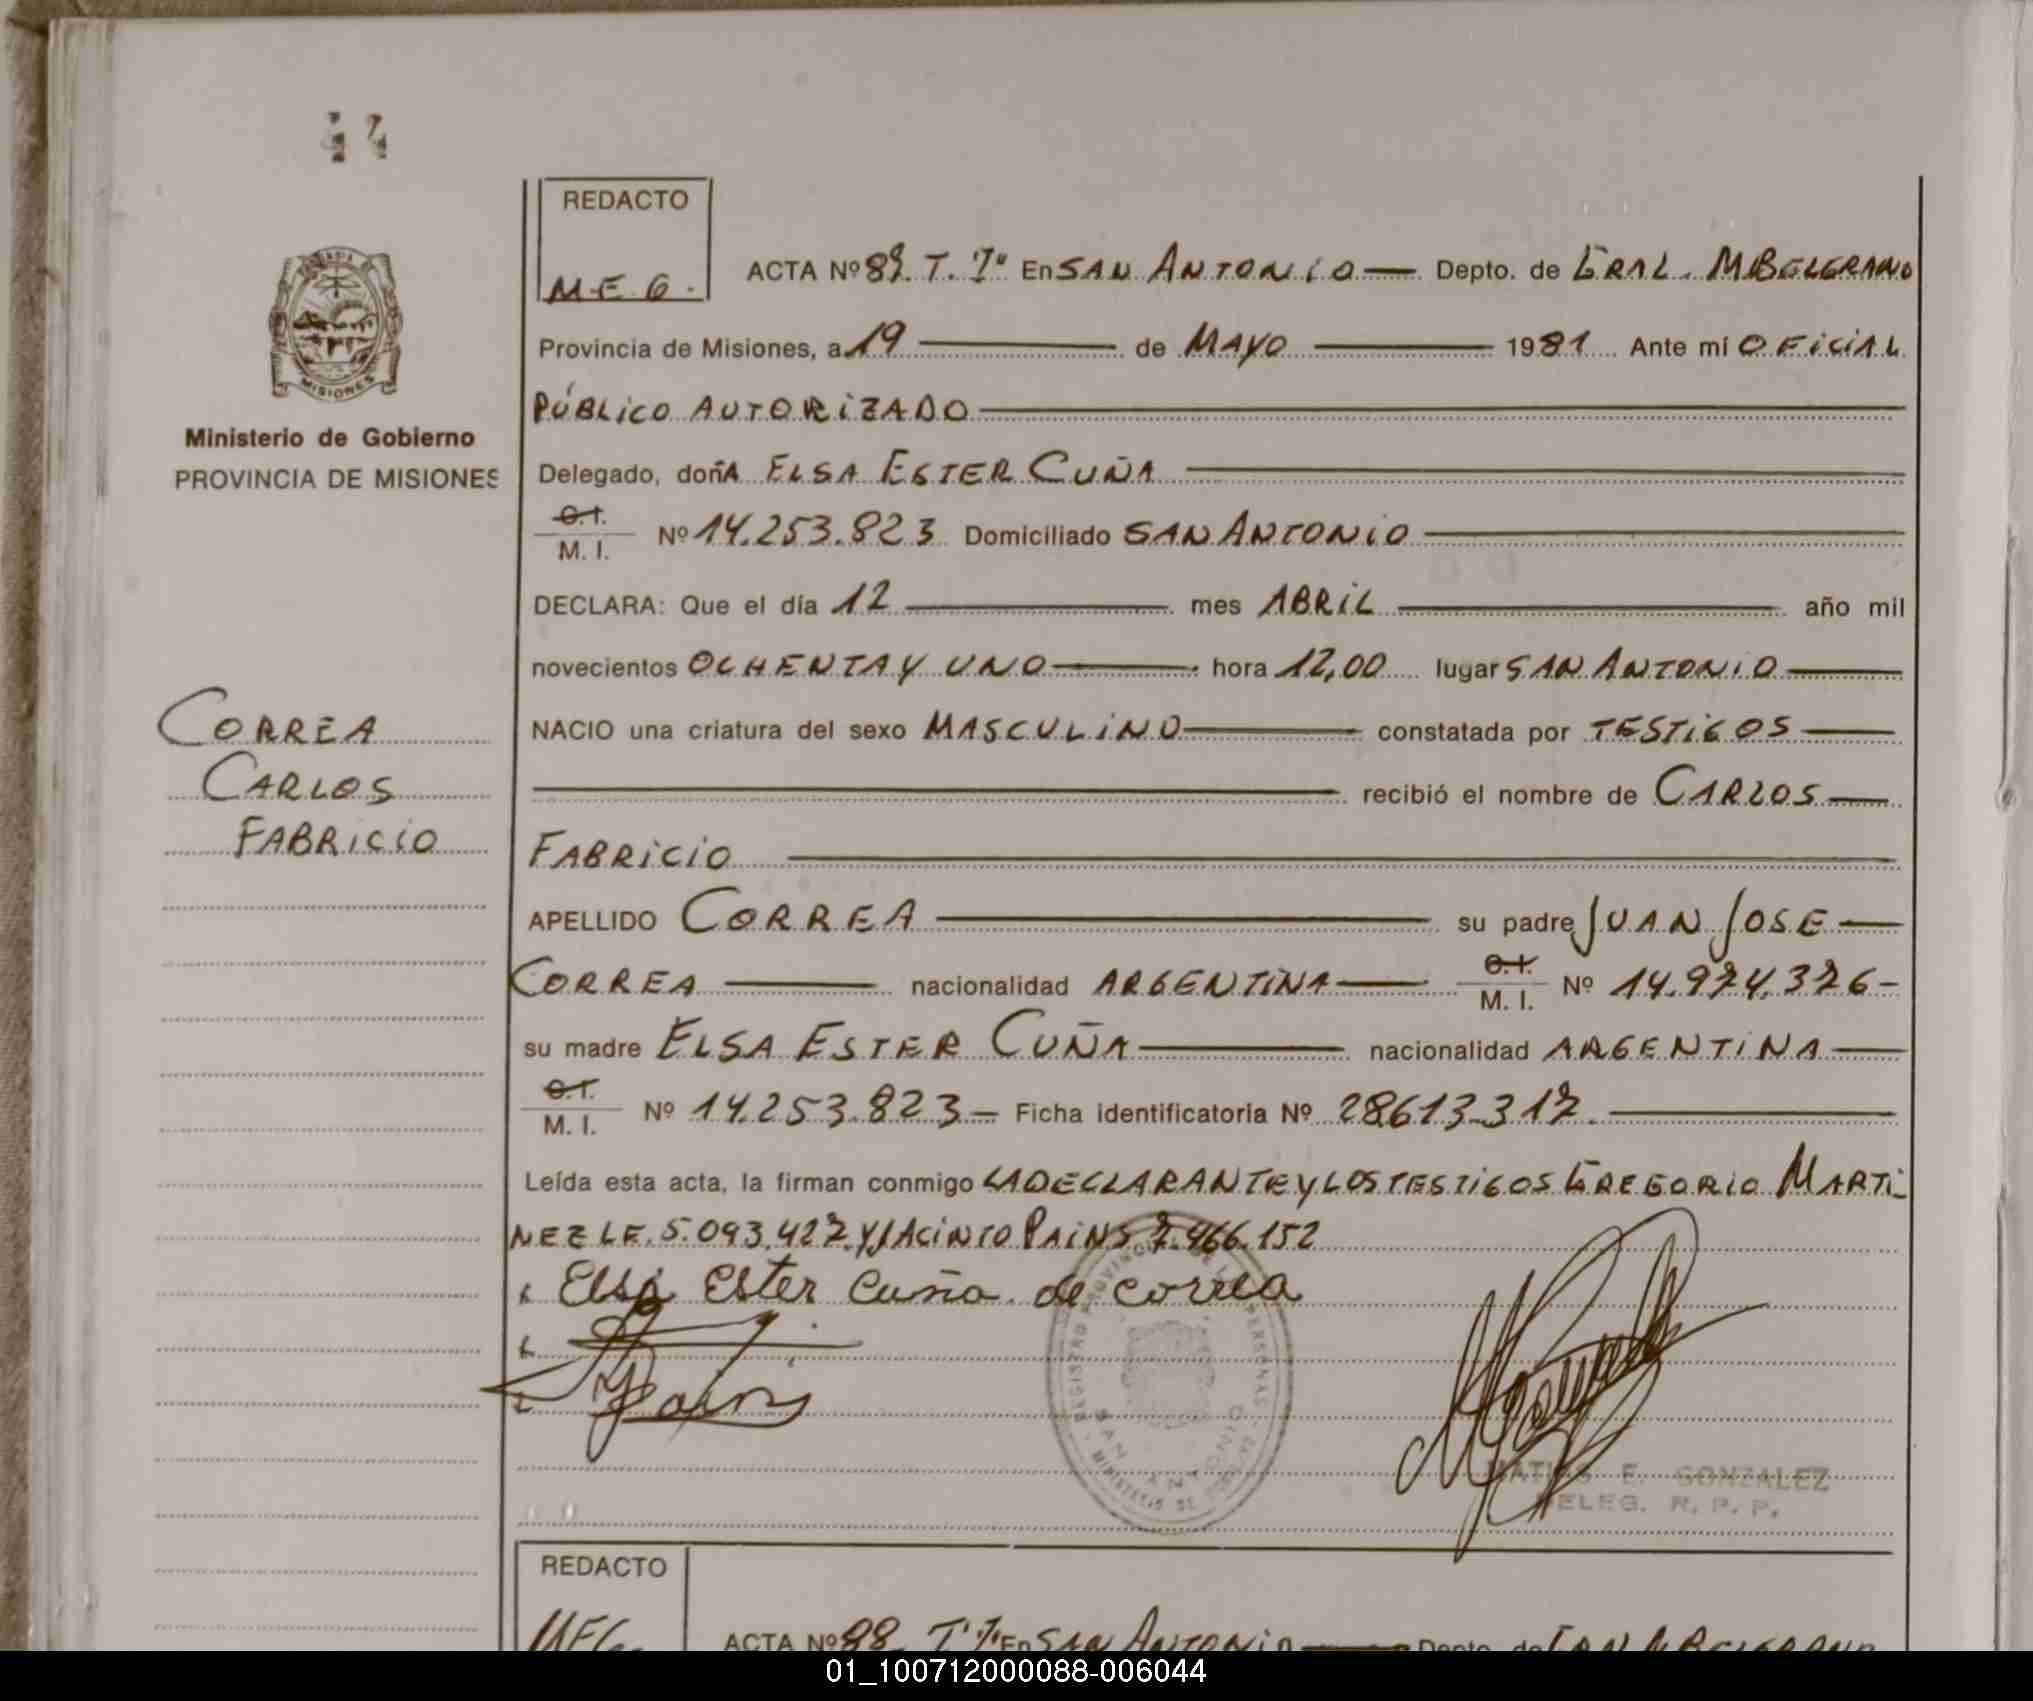 44
REDACTO
M.E.G.
ACTA Nº 87. T. 1º En SAN ANTONIO — Depto. de GRAL. M BELGRANO
Provincia de Misiones, a 19 — de MAYO — 1981 Ante mí OFICIAL
PÚBLICO AUTORIZADO —
Ministerio de Gobierno
PROVINCIA DE MISIONES
Delegado, doñA ELSA ESTER CUÑA —
O.I.
M. I. Nº 14.253.823 Domiciliado SAN ANTONIO —
DECLARA: Que el día 12 — mes ABRIL — año mil
novecientos OCHENTA Y UNO — hora 12,00 lugar SAN ANTONIO —
CORREA
CARLOS
FABRICIO
NACIO una criatura del sexo MASCULINO — constatada por TESTIGOS —
— recibió el nombre de CARLOS —
FABRICIO —
APELLIDO CORREA — su padre JUAN JOSE —
CORREA — nacionalidad ARGENTINA — O.I. M. I. Nº 14.974.376 -
su madre ELSA ESTER CUÑA — nacionalidad ARGENTINA —
O.I.
M. I. Nº 14.253.823 — Ficha identificatoria Nº 28613-317. —
Leída esta acta, la firman conmigo LA DECLARANTE Y LOS TESTIGOS GREGORIO MARTI-
NEZ LE. 5.093.427. Y JACINTO PAINS 7.466.152
Elsa Ester Cuña de Correa
REGISTRO PROVINCIAL DE LAS PERSONAS
SAN ANTONIO
MATIAS E. GONZALEZ
DELEG. R. P. P.
REDACTO
MEG.
ACTA Nº 88 T. 1º En SAN ANTONIO — Depto. de GRAL M BELGRANO
01_100712000088-006044